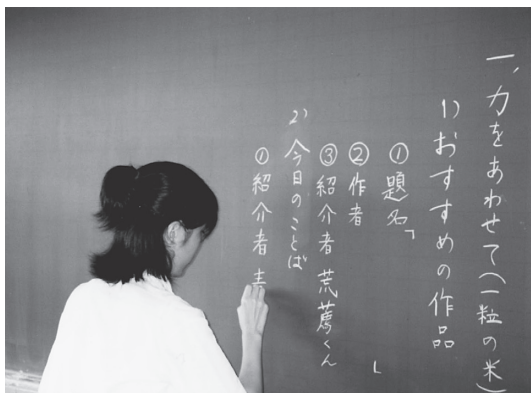 一、力をあわせて(一粒の米)
1)おすすめの作品
①題名「 」
②作者
③紹介者 荒蔦くん
2)今日のことば
①紹介者 吉